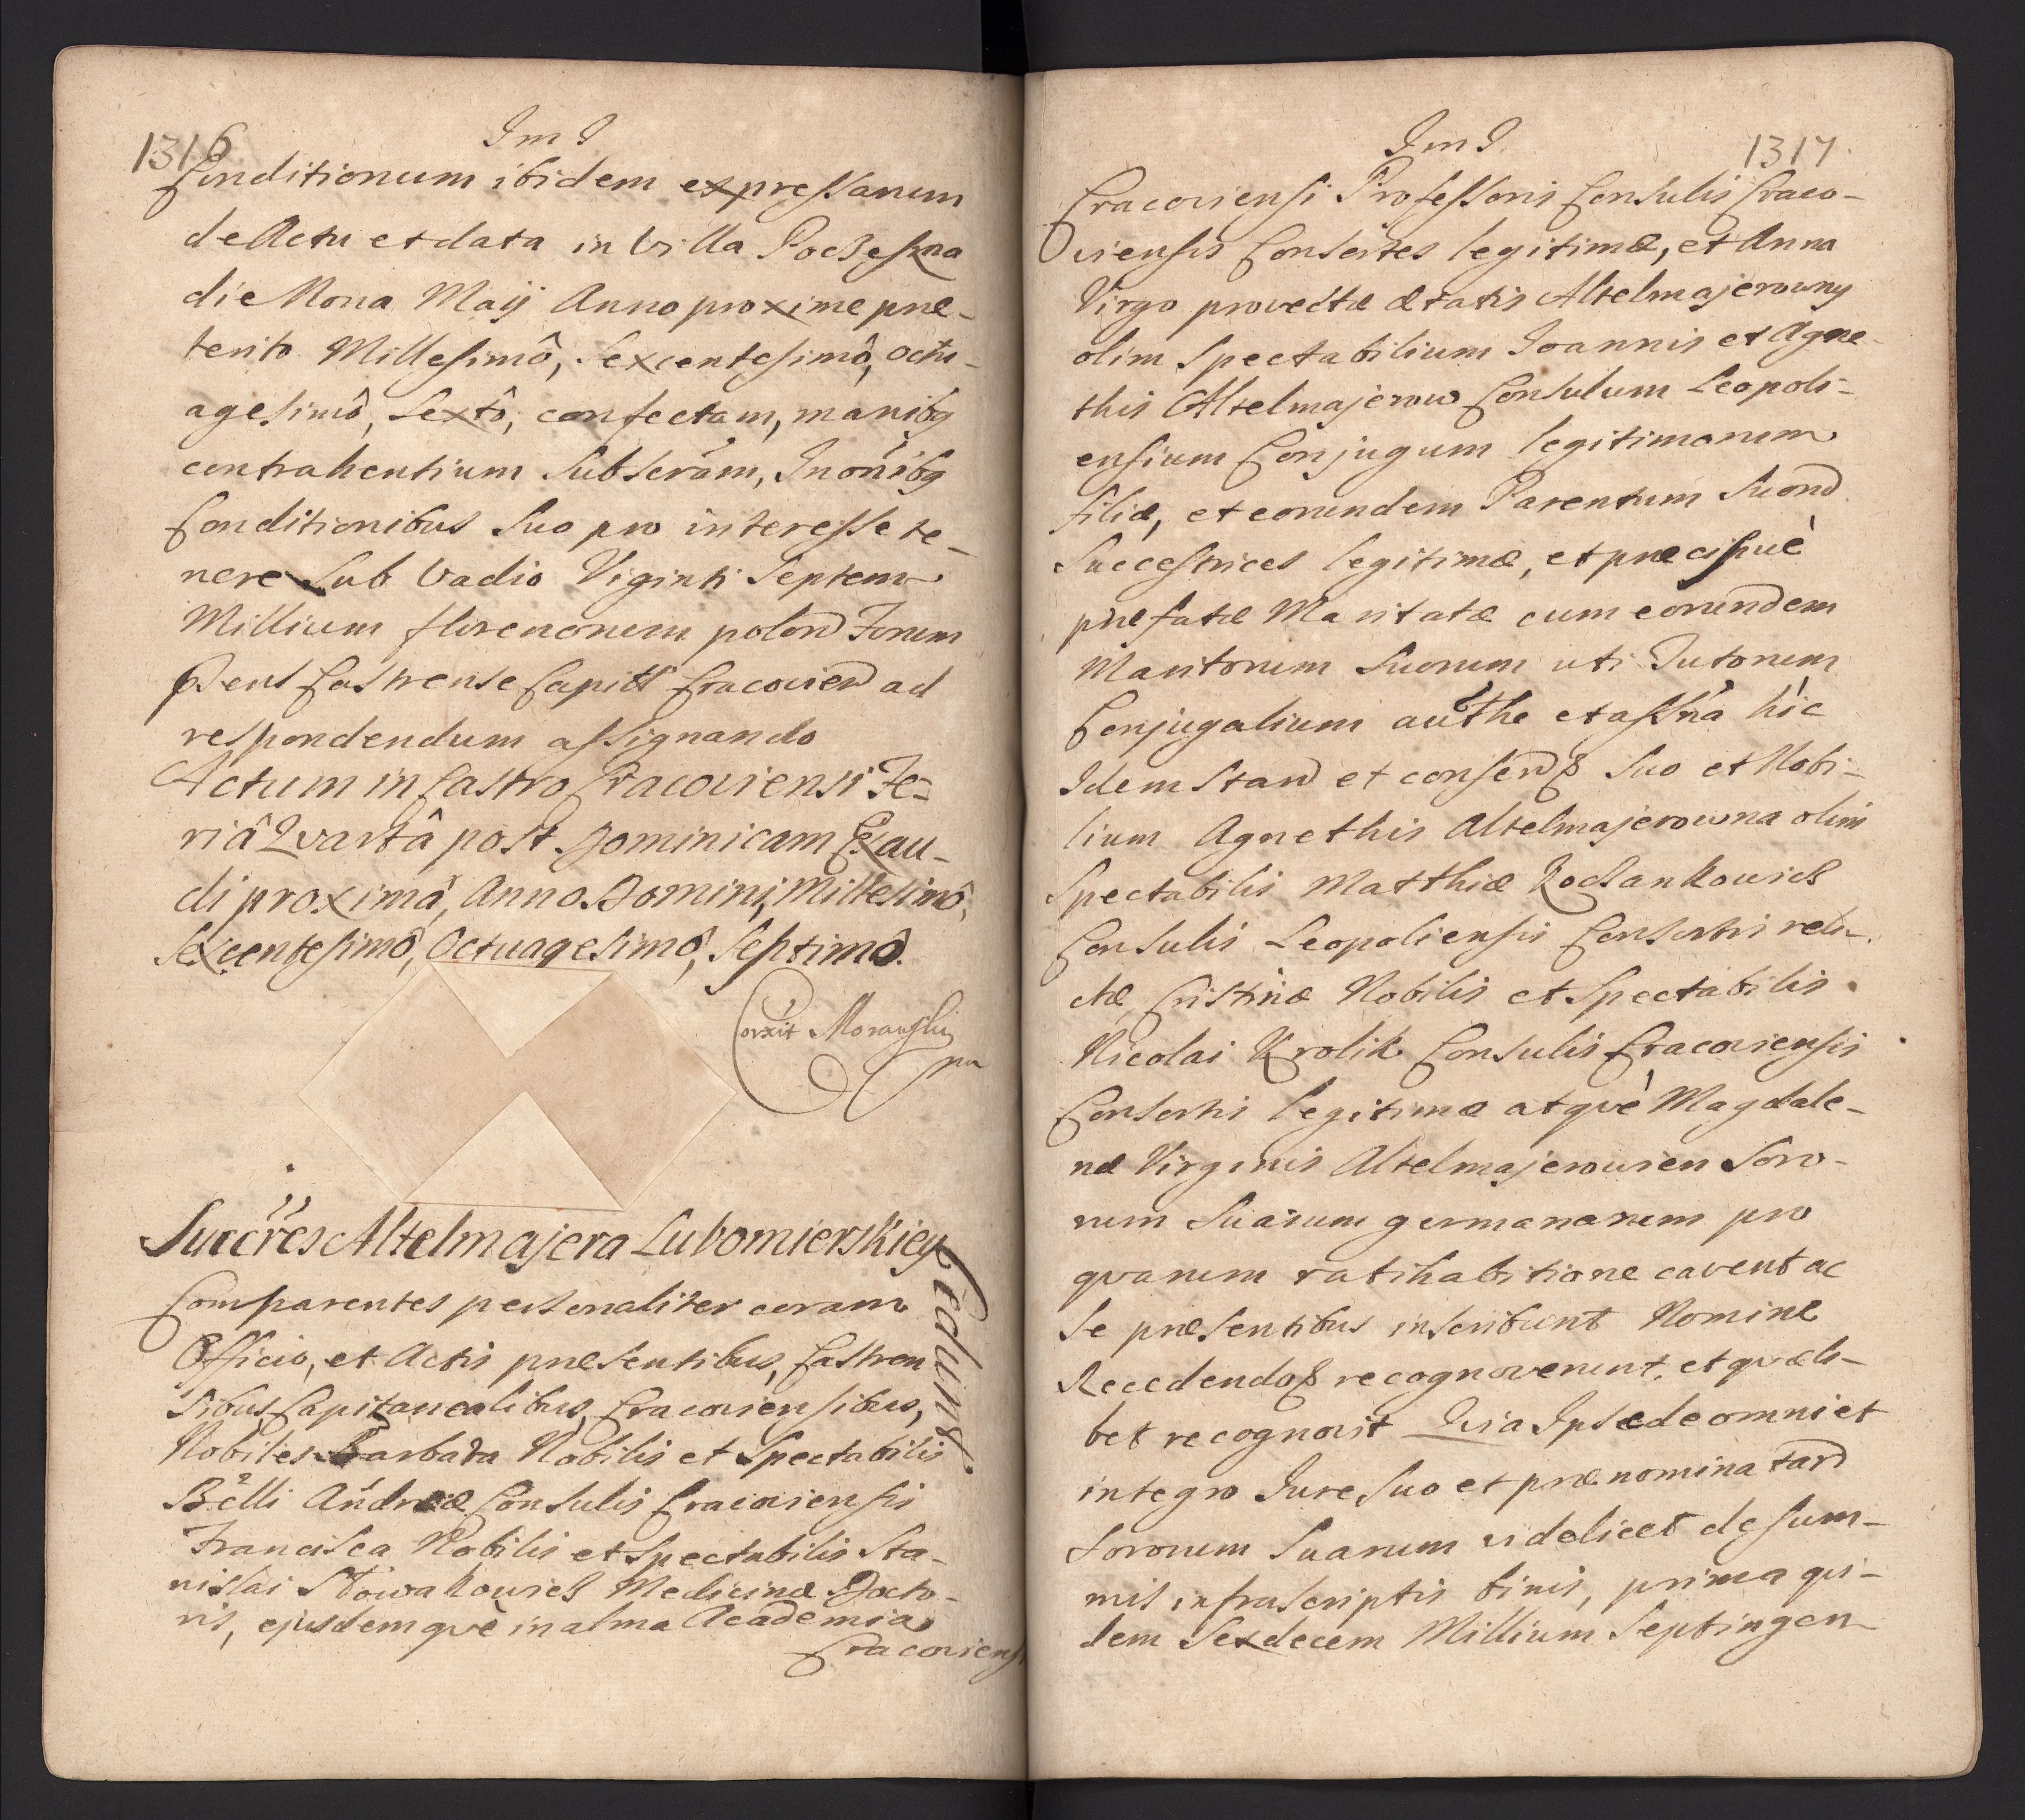 1316
Im I
Conditionum ibidem expressarum
de Actu et data in Villa Poczeszna
die Nona Maij Anno proxime præ-
terito Millesimô, Sexcentesimô, octu-
agesimô, Sextô, confectam, manibq
contrahentium Subscram, In onibq
Conditionibus Suo pro interesse te-
nere Sub Vadio Viginti Septem
Millium florenorum polon Forum
Pens Castrense Capitl Cracovien ad
respondendum assignando
Actum in Castro Cracoviensi Fe-
riâ Qvartâ post Dominicam Exau-
di proximâ, Anno Domini, Millesimô,
Sexcentesimô, Octuagesimô, Septimô.
Corxit Morawski
pa
Succres Altelmajera Lubomierskiey
Cedunt.
Comparentes personaliter coram
Officio, et Actis præsentibus, Castren
sibus Capitanealibus, Cracoviensibus,
Nobiles Barbara Nobilis et Spectabilis
Belli Andreæ Consulis Cracoviensis
Francisca Nobilis et Spectabilis Sta-
nislai Słowakowicz Medicinæ Docto-
ris, ejusdemqvè in alma Academia
Cracoviensi
Im I.
1317.
Cracoviensi Professoris Consulis Craco-
viensis Consortes legitimæ, et Anna
Virgo provectæ ætatis Altelmajerowny
olim Spectabilium Joannis et Agne-
this Altelmajerow Consulum Leopoli-
ensium Conjugum legitimorum
filiæ, et eorundem Parentum Suord
Succestrices legitimæ, et præcipuè
præfatæ Maritatæ cum eorundem
Maritorum Suorum uti Tutorum
Conjugalium authe et assña hic
Idem Stan et consen Suo et Nobi-
lium Agnethis Altelmajerowna olim
Spectabilis Matthiæ Kochankowicz
Consulis Leopoliensis Consortis reli-
ctæ, Cristinæ Nobilis et Spectabilis
Nicolai Krolik Consulis Cracoviensis
Consortis legitimæ atqvè Magdale-
næ Virginis Altelmajerowien Soro-
rum Suarum germanarum pro
qvarum ratihabitione cavent ac
Se præsentibus inscribunt Nomine
Recedendo recognoverunt, et qvæli-
bet recognovit Qvia Ipsæ de omni et
integro Jure Suo et prænominatard
Sororum Suarum videlicet de Sum-
mis infrascriptis binis, prima qvi-
dem Sexdecem Millium Septingen